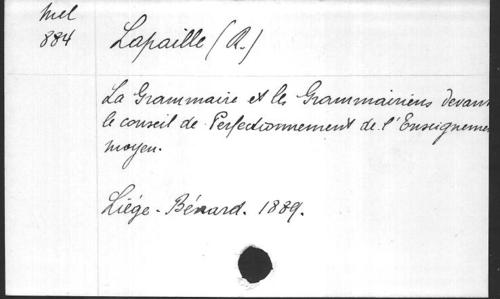 Mel
884
Lapaille (R.)
La Grammaire et les Grammairiens devant
le conseil de Perfectionnement de l'Enseigneme
moyen.
Liége - Bénard. 1889.